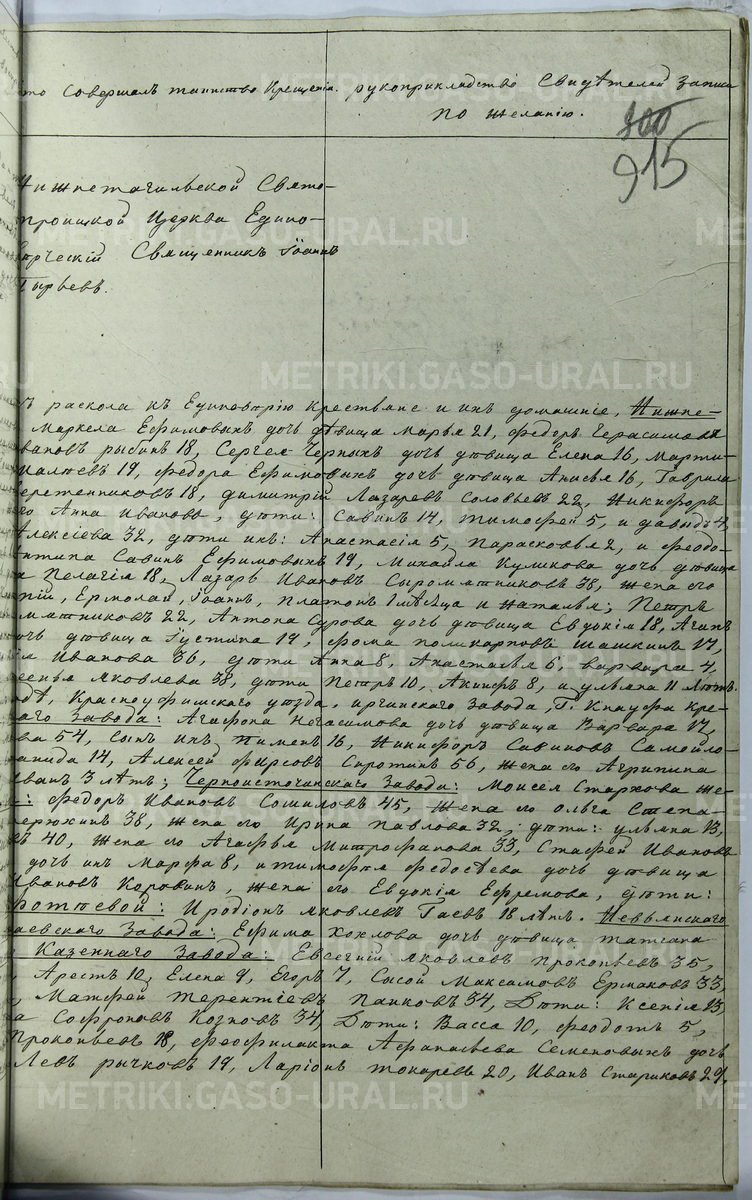 Кто совершалъ таинство Крещенія. рукоприкладство Свидѣтелей записи
по желанію.
300
915
Нижнетагильской Свято-
троицкой Церкви Едино-
вѣрческій Священникъ Іоаннъ
Гырьевъ.
раскола къ Единовѣрію крестьяне и ихъ домашніе, Нижне-
Маркела Ефимовыхъ дочь дѣвица Марья 21, Федоръ Герасимовъ
Ивановъ рыбинъ 18, Сергея Черныхъ дочь дѣвица Елена 16, Марти
19, Федора Ефимовыхъ дочь дѣвица Анисья 16, Гаврила
Веретенниковъ 18, Димитрій Лазаревъ Соловьевъ 22, Никифоръ
его Анна Иванова, дѣти: Савинъ 14, Тимофей 5, и Давыдъ 4,
Алексіева 32, дѣти ихъ: Анастасія 5, Парасковья 2, и Феодо-
Савинъ Ефимовыхъ 19, Михаила Куликова дочь дѣвица
Пелагія 18, Лазарь Ивановъ Сыромятниковъ 38, жена его
Ермолай, Іоаннъ, Платонъ 1 мѣсяца и Наталья; Петръ
мятниковъ 22, Антона Сурова дочь дѣвица Евдокія 18, Агапъ
дочь дѣвица Іустина 19, Фома поликарповъ Шашкинъ 17,
Иванова 36, дѣти Анна 8, Анастасья 6, варвара 4,
Яковлева 38, дѣти Петръ 10, Акинфъ 8, и ульяна 11 лѣтъ.
Красноуфимскаго уѣзда, иргинскаго Завода, Г. Кнауфа кре-
Завода: Агафона Негасимова дочь дѣвица Варвара 17,
54, сынъ ихъ Пименъ 16, Никифоръ Савиновъ Самойло-
14, Алексей Фирсовъ Сиротинъ 56, жена его Агрипина
Иванъ 3 лѣтъ; Черноисточинскаго Завода: Моисея Старкова же-
Федоръ Ивановъ Сошиловъ 45, жена его Ольга Степа-
38, жена его Ирина Павлова 32, дѣти: ульяна 13,
40, жена его Агафья Митрофанова 33, Стафей Ивановъ
дочь ихъ Марфа 8, и тимофея Федосѣева дочь дѣвица
Ивановъ Коровинъ, жена его Евдокія Ефремова, дѣти:
Иродіонъ Яковлевъ Гаевъ 18 лѣтъ. Невьянскаго
Завода: Ефима Хохлова дочь дѣвица татіана
Казеннаго Завода: Евсегній Яковлевъ Прокопьевъ 35,
Арестъ 10, Елена 9, Егоръ 7, Сысой Максимовъ Ермаковъ 33,
Матфей Терентіевъ Панковъ 34, Дѣти: Ксенія 13,
Софроновъ Козновъ 34, Дѣти: Васса 10, Феодотъ 5,
Прокопьевъ 18, Феофилакта Афанасьева Семеновыхъ дочь
Левъ рычковъ 19, Ларіонъ токаревъ 20, Иванъ Стариковъ 29,
METRIKI.GASO-URAL.RU